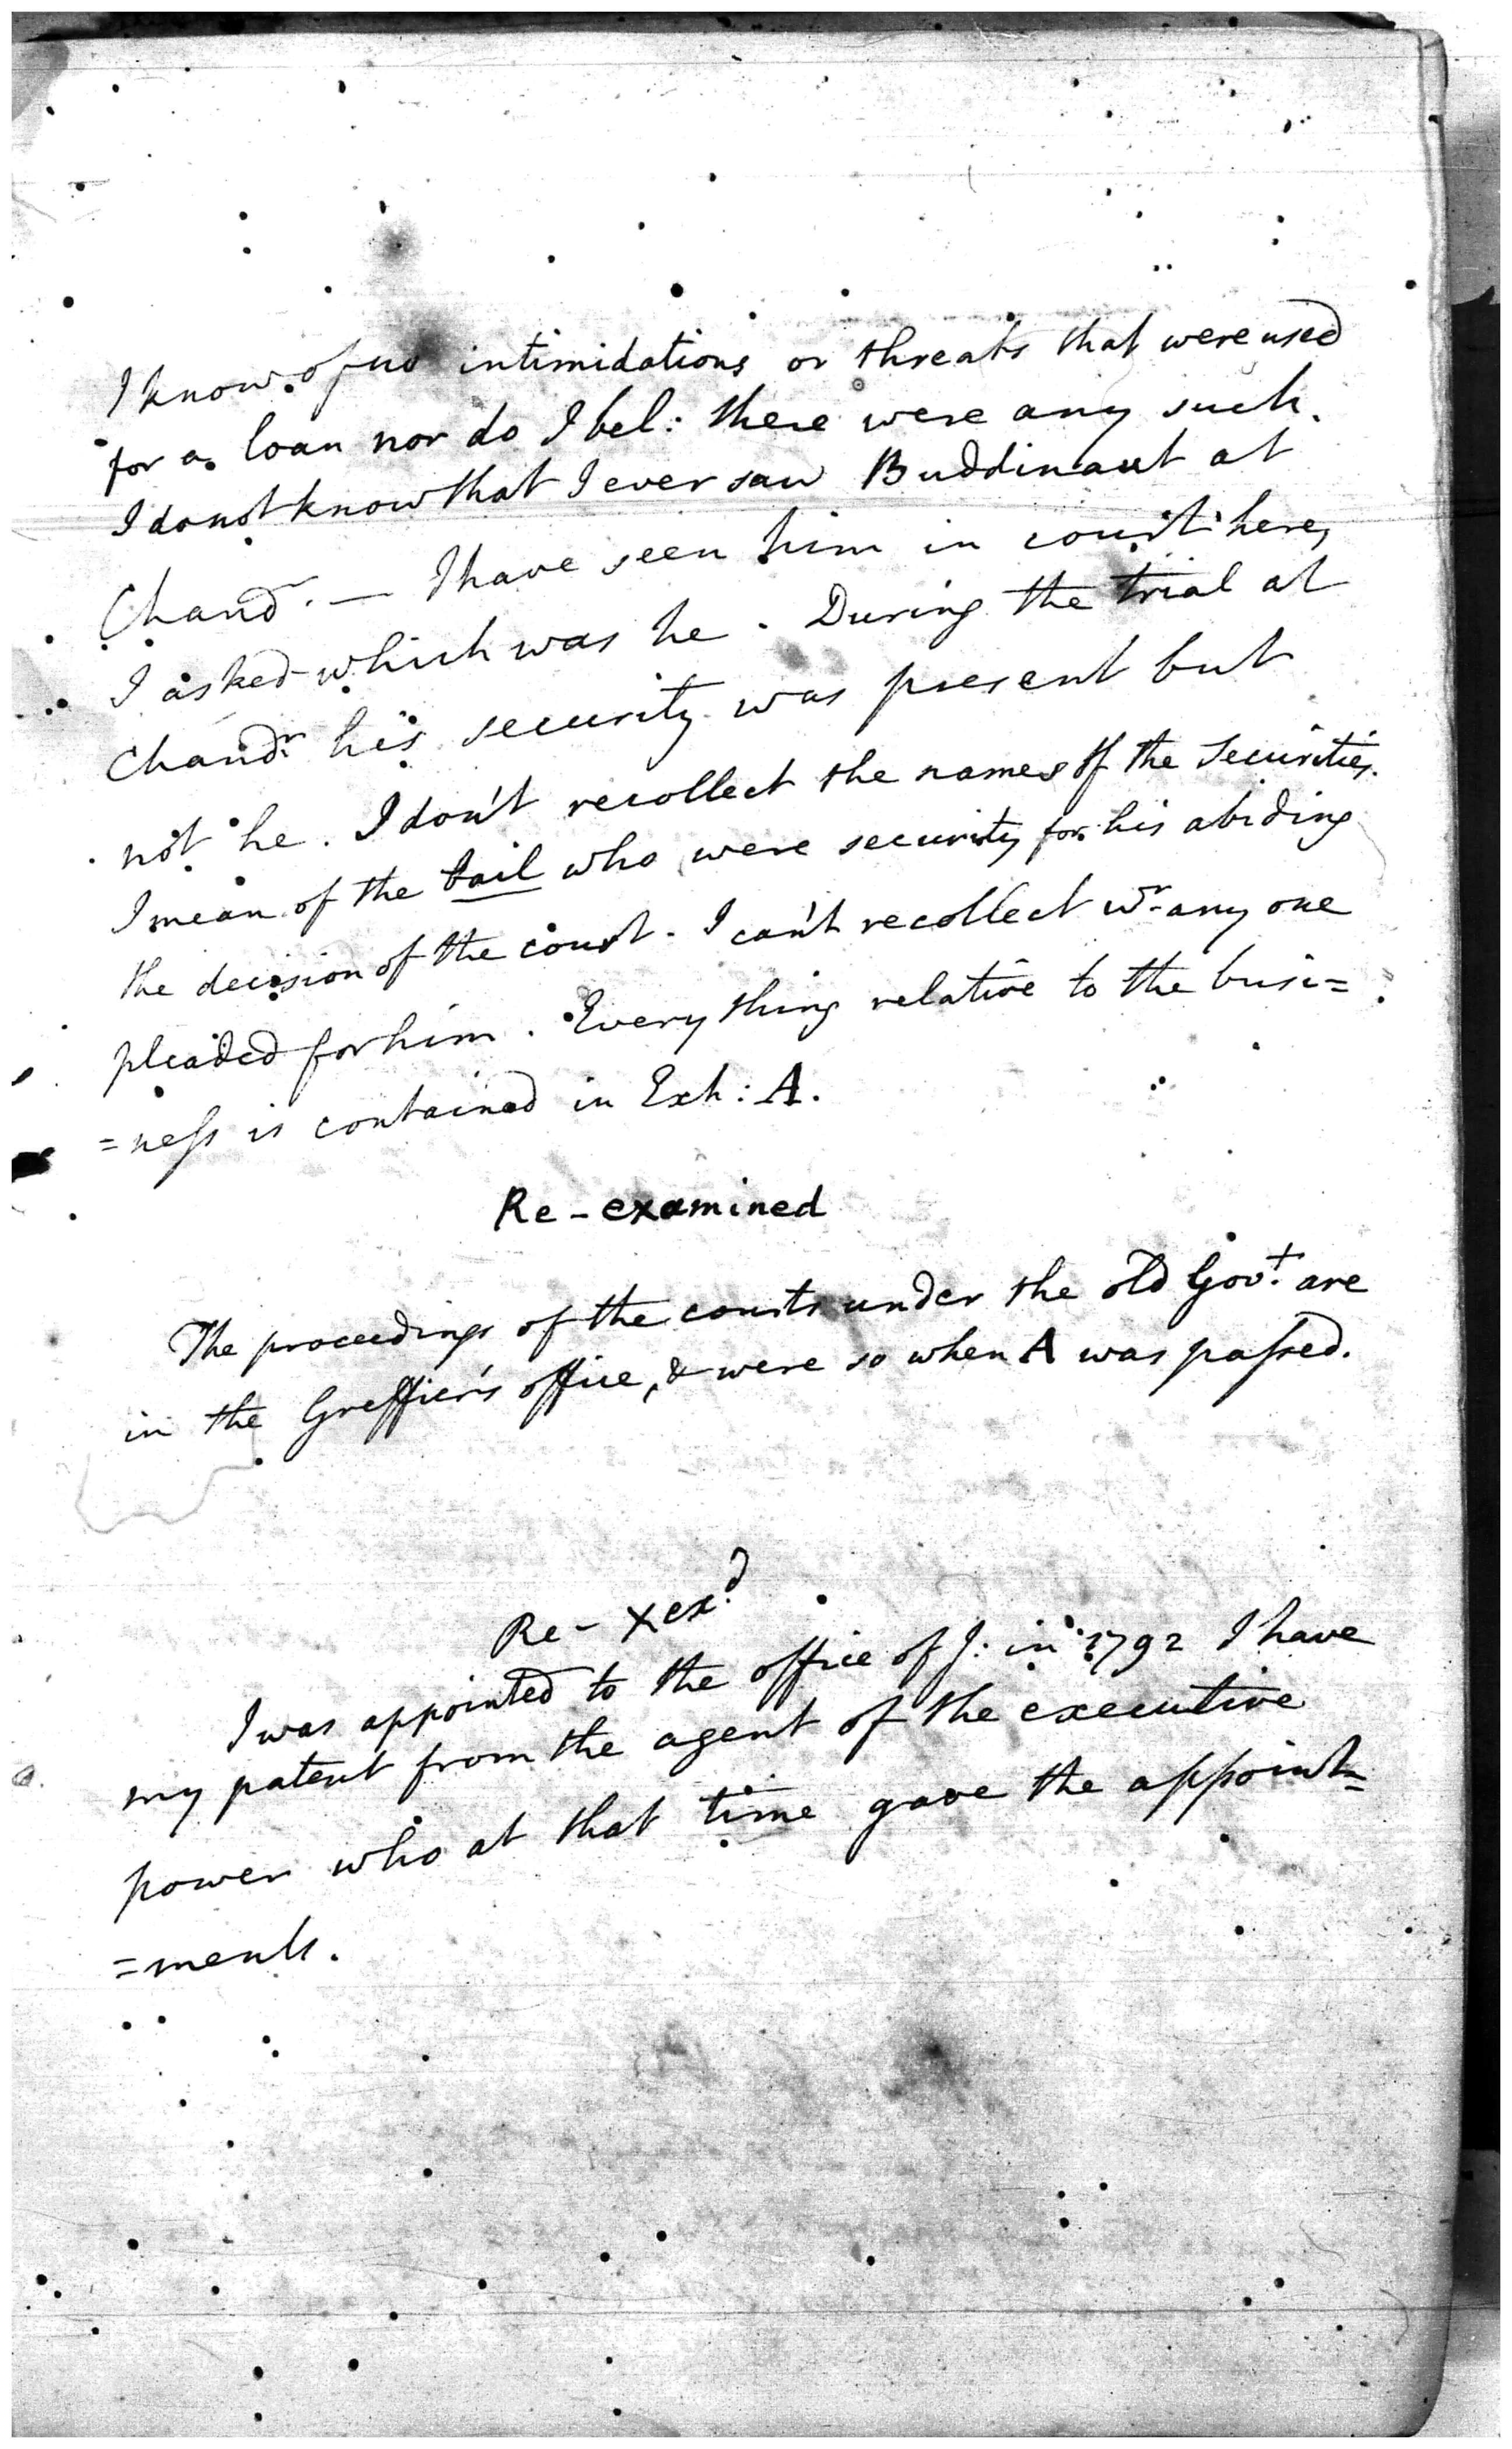 I know of no intimidations or threats that were used
for a loan nor do I bel: there were any such.
I do not know that I ever saw Buddinaut at
Chandr. — I have seen him in court here,
I asked which was he. During the trial at
Chandr his security was present but
not he. I don't recollect the names of the Securities.
I mean of the bail who were security for his abiding
the decision of the court. I can't recollect wr any one
pleaded for him. Every thing relative to the busi=
=ness is contained in Exh: A.
Re-examined
The proceedings of the courts under the old Govt. are
in the Greffier's office, & were so when A was passed.
Re-Xexd.
I was appointed to the office of J: in 1792 I have
my patent from the agent of the executive
power who at that time gave the appoint=
=ments.